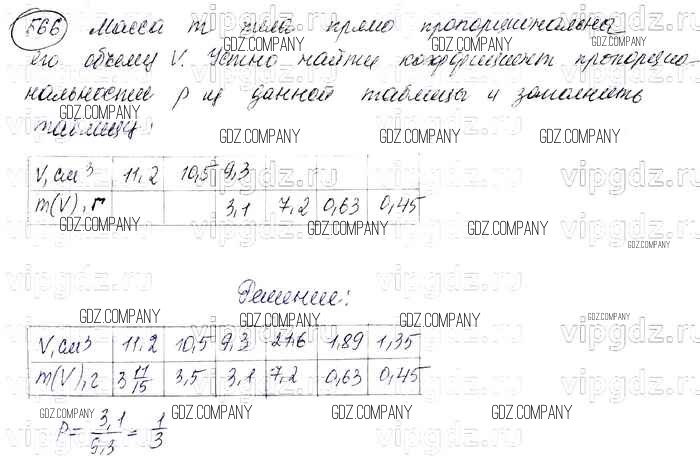 566 Масса m тела прямо пропорциональна
его объему V. Устно найти коэффициент пропорцио-
нальности ρ из данной таблицы и заполнить
таблицу:
V, см3 11,2 10,5 9,3
m(V), г 3,1 7,2 0,63 0,45
Решение:
V, см3 11,2 10,5 9,3 21,6 1,89 1,35
m(V), г 3 11/15 3,5 3,1 7,2 0,63 0,45
ρ = 3,1/9,3 = 1/3
GDZ.COMPANY
vipgdz.ru